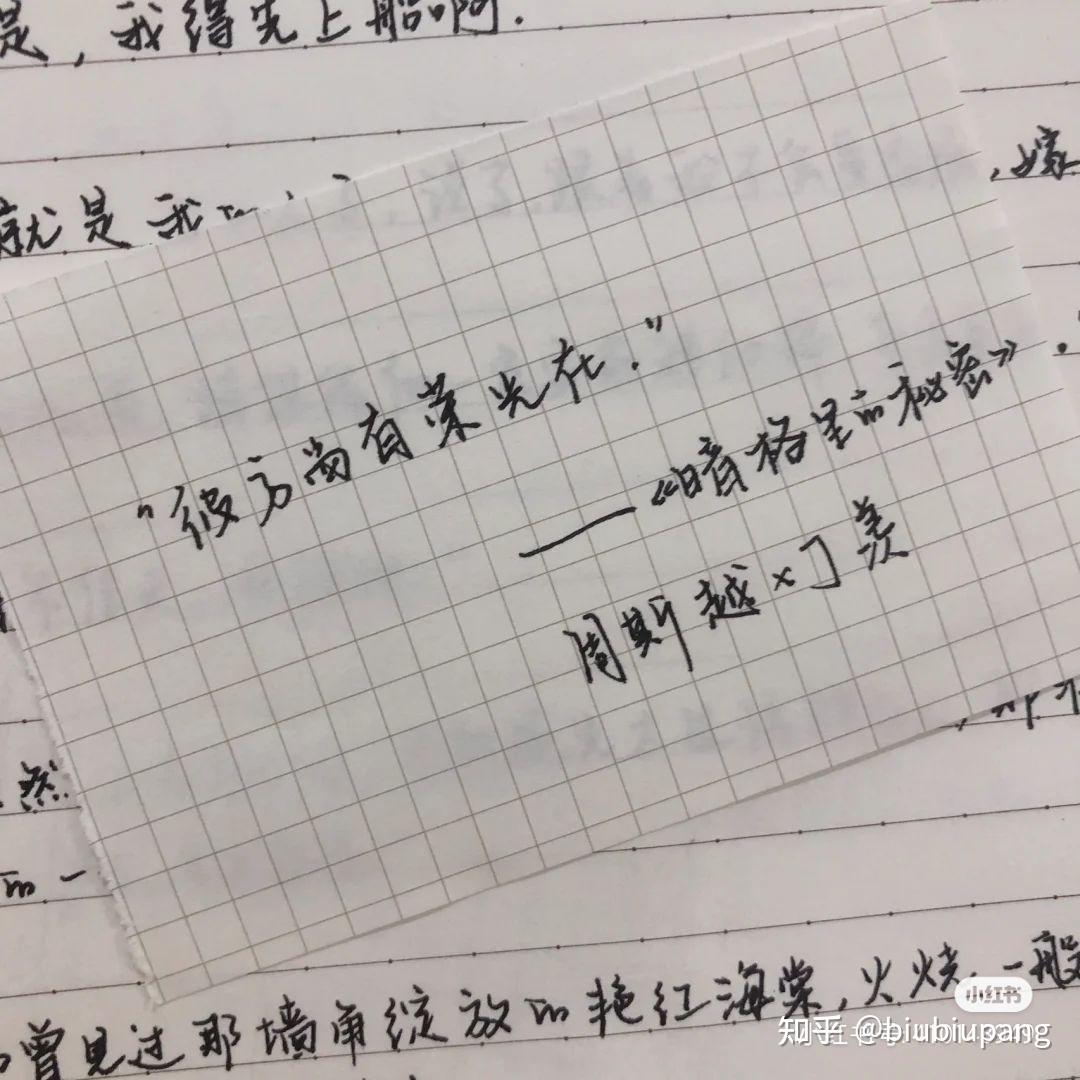 是，我得先上船啊.
就是我
，嫁
“彼方尚有荣光在.”
——《暗格里的秘密》
周斯越×丁羡
然
的一
曾见过那墙角绽放的艳红海棠，火烧一般
小红书
知乎 @biubiupang